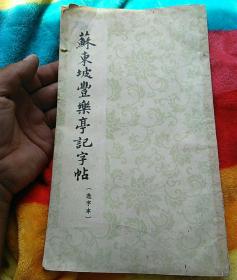 蘇東坡豐樂亭記字帖
(選字本)